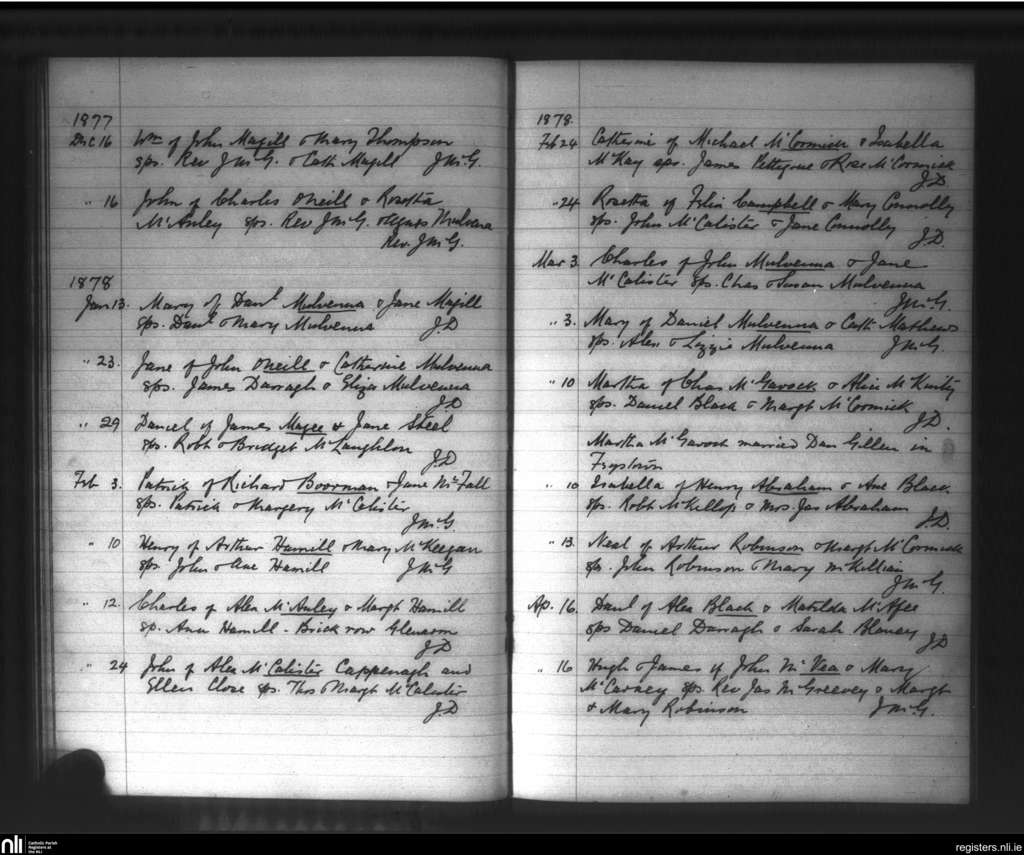 1877
Dec 16 Wm of John Magill & Mary Thompson
sps. Rev J McG. & Cath Magill J McG.
" 16 John of Charles Oneill & Rosetta
McAuley sps. Rev J McG. & Agnes Mulvena
Rev. J McG.
1878
Jan 13. Mary of Danl Mulvenna & Jane Magill
sps. Danl & Mary Mulvenna J.D
" 23. Jane of John Oneill & Catherine Mulvenna
sps. James Darragh & Eliza Mulvenna
J.D
" 29 Daniel of James Magee & Jane Steel
sps. Robt & Bridget McLaughlon
J.D
Feb 3. Patrick of Richard Boorman & Jane McFall
sps. Patrick & Margery McCalister
J McG.
" 10 Henry of Arthur Hamill & Mary McKeegan
sps. John & Ane Hamill J McG
" 12. Charles of Alex McAuley & Margt Hamill
sp. Ann Hamill - Brick row Glenarm
J.D
" 24 John of Alex McCalister Cappenagh and
Ellen Close sps. Thos & Margt McCalister
J.D
1878.
Feb 24 Catherine of Michael McCormick & Isabella
McKay sps. James Pettigrue & Rose McCormick
J.D
" 24 Rosetta of Felix Campbell & Mary Connolly
sps. John McCalister & Jane Connolly
J.D.
Mar 3. Charles of John Mulvenna & Jane
McCalister sps. Chas & Susan Mulvenna
J McG.
" 3. Mary of Daniel Mulvenna & Cath Mathews
sps. Alex & Lizzie Mulvenna J McG.
" 10 Martha of Chas McGavock & Alice McKinty
sps. Daniel Black & Margt McCormick
J.D.
Martha McGavock married Dan Gillen in
" 10 Isabella of Henry Abraham & Ane Black
sps. Robt McKillop & Mrs. Jas Abraham
J.D.
" 13. Neal of Arthur Robinson & Margt McCormick
sp. John Robinson & Mary McKillian
J McG.
Ap. 16. Danl of Alex Black & Matilda McAfee
sps Daniel Darragh & Sarah Blaney J D
" 16 Hugh & James of John McVea & Mary
McCarney sps. Rev Jas McGreevey & Margt
& Mary Robinson J McG.
nli Catholic Parish
Registers at
the NLI
registers.nli.ie